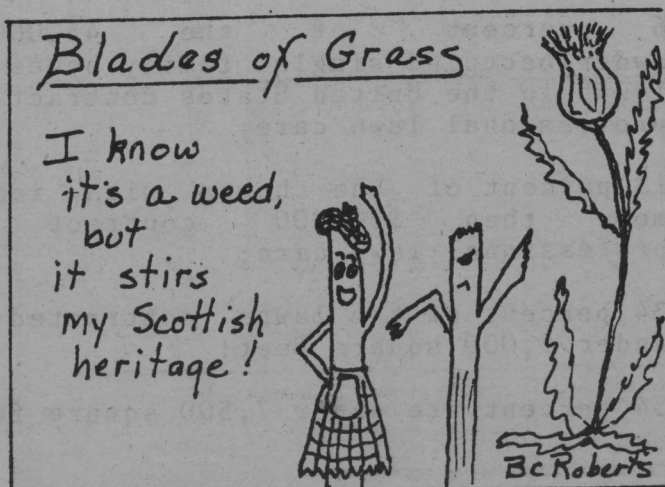 Blades of Grass
I know
it's a weed,
but
it stirs
my Scottish
heritage!
BC Roberts